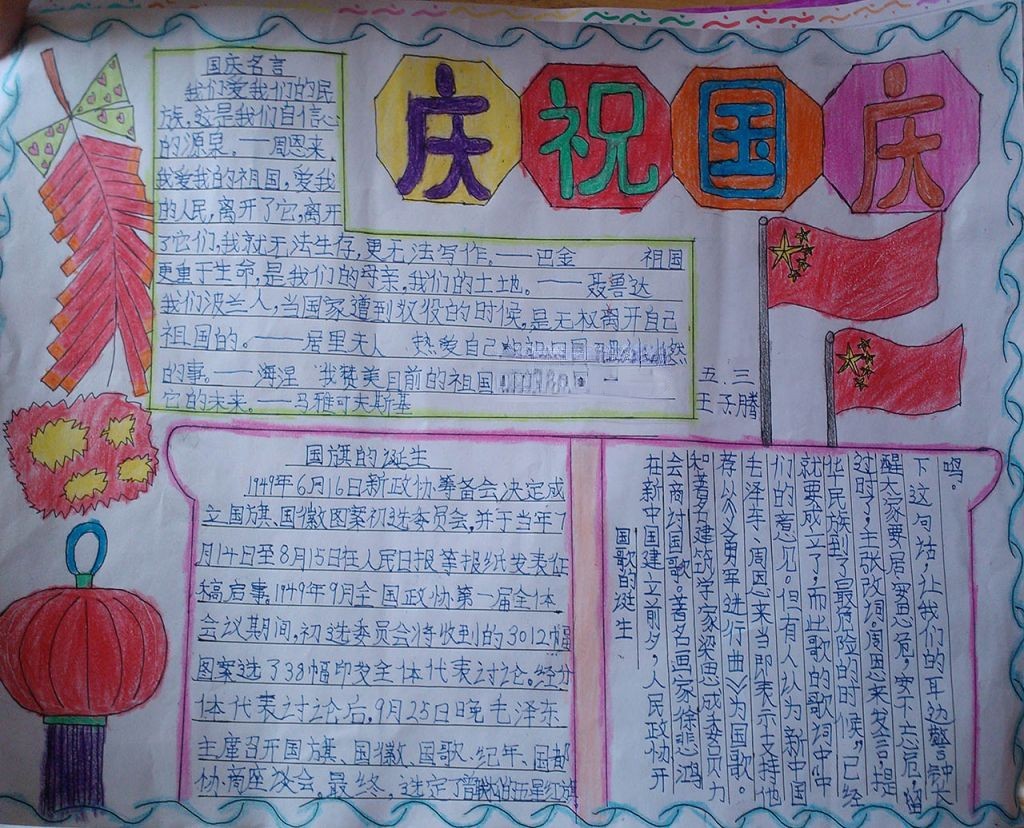 庆祝国庆
国庆名言
我们爱我们的民
族,这是我们自信心
的源泉。——周恩来
我爱我的祖国,爱我
的人民,离开了它,离开
了它们,我就无法生存,更无法写作。——巴金 祖国
更重于生命,是我们的母亲,我们的土地。——聂鲁达
我们波兰人,当国家遭到奴役的时候,是无权离开自己
祖国的。——居里夫人 热爱自己
的事。——海涅 我赞美目前的祖国
它的未来。——马雅可夫斯基
五.三
王子腾
国旗的诞生
1949年6月16日新政协筹备会决定成
立国旗、国徽图案初选委员会,并于当年7
月14日至8月15日在人民日报等报纸发表征
稿启事。1949年9月全国政协第一届全体
会议期间,初选委员会将收到的3012幅
图案选了38幅印发全体代表讨论。经分
体代表讨论后,9月25日晚毛泽东
主席召开国旗、国徽、国歌、纪年、国都
协商座谈会。最终,选定了的五星红旗
国歌的诞生
在新中国建立前夕,人民政协开
会商讨国歌。著名画家徐悲鸿
和著名建筑学家梁思成委员力
荐以《义勇军进行曲》为国歌。
毛泽东、周恩来当即表示支持他
们的意见。但有人认为新中国
就要成立了,而此歌的歌词中“中
华民族到了最危险的时候”,已经
过时了,主张改词。周恩来发言,提
醒大家要居安思危,安不忘危,留
下这句话,让我们的耳边警钟长
鸣。